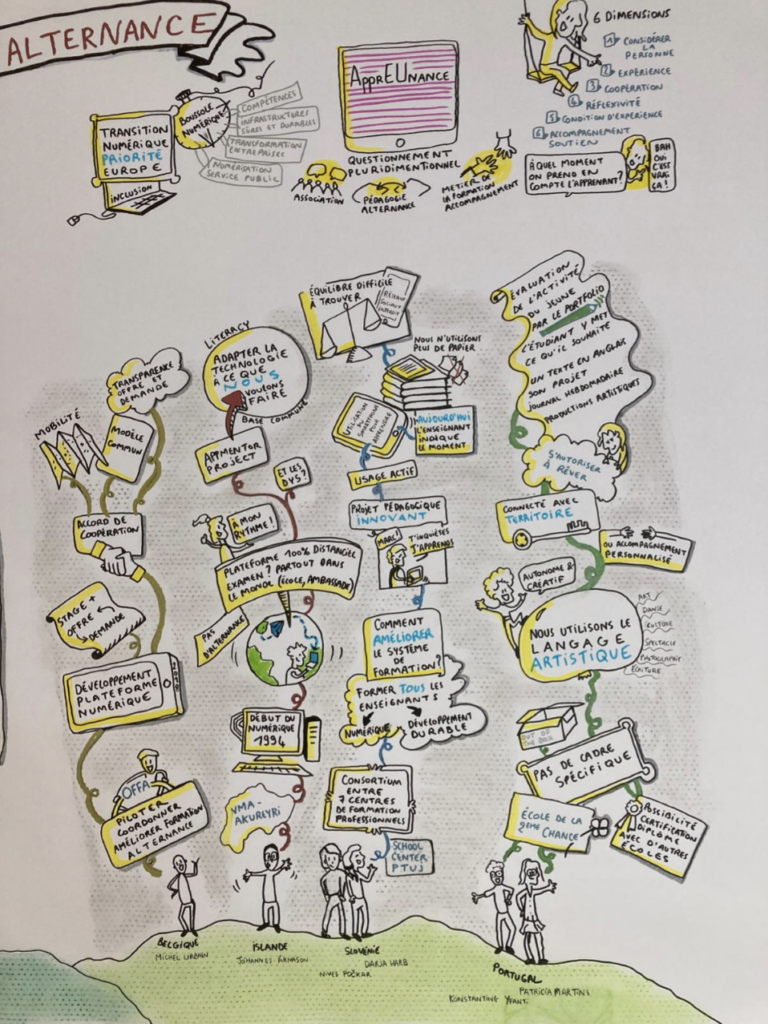 ALTERNANCE
TRANSITION
NUMÉRIQUE
PRIORITÉ
EUROPE
INCLUSION
BOUSSOLE
NUMÉRIQUE
COMPÉTENCES
INFRASTRUCTURES
SÛRES ET DURABLES
TRANSFORMATION
ENTREPRISES
NUMÉRISATION
SERVICE PUBLIC
APPREUNANCE
QUESTIONNEMENT
PLURIDIMENTIONNEL
ASSOCIATION
PÉDAGOGIE
ALTERNANCE
METIER DE
LA FORMATION
ACCOMPAGNEMENT
6 DIMENSIONS
1 CONSIDÉRER
LA
PERSONNE
2 EXPÉRIENCE
3 COOPÉRATION
4 RÉFLEXIVITÉ
5 CONDITION D'EXPERIENCE
6 ACCOMPAGNEMENT
SOUTIEN
À QUEL MOMENT
ON PREND EN
COMPTE L'APPRENANT?
BAH
OUI
C'EST
VRAI
ÇA!
TRANSPARENCE
OFFRE ET
DEMANDE
MOBILITÉ
MODÈLE
COMMUN
ACCORD DE
COOPÉRATION
STAGE +
OFFRE
DEMANDE
DÉVELOPPEMENT
PLATEFORME
NUMÉRIQUE
OFFA
PILOTER
COORDONNER
AMÉLIORER FORMATION
ALTERNANCE
BELGIQUE
MICHEL URBAIN
LITERACY
ADAPTER LA
TECHNOLOGIE
À CE QUE
NOUS
VOULONS
FAIRE
BASE COMMUNE
APPMENTOR
PROJECT
ET LES
DYS?
À MON
RYTHME!
PLATEFORME 100% DISTANCIEL
EXAMEN? PARTOUT DANS
LE MONDE (ÉCOLE, AMBASSADE)
PAS
D'ALTERNANCE
DÉBUT DU
NUMÉRIQUE
1994
VMA-
AKUREYRI
ISLANDE
JÓHANNES ÁRNASON
ÉQUILIBRE DIFFICILE
À TROUVER
NOUS N'UTILISONS
PLUS DE PAPIER
UTILISATION
DU
SMARTPHONE
POUR
APPRENDRE
AUJOURD'HUI
L'ENSEIGNANT
INDIQUE
LE MOMENT
USAGE ACTIF
PROJET PÉDAGOGIQUE
INNOVANT
MARC!
T'INQUIÈTES
J'APPRENDS
COMMENT
AMÉLIORER
LE SYSTÈME
DE
FORMATION?
FORMER TOUS LES
ENSEIGNANTS
NUMÉRIQUE
DÉVELOPPEMENT
DURABLE
CONSORTIUM
ENTRE
7 CENTRES
DE FORMATION
PROFESSIONNELS
SCHOOL
CENTER
PTUJ
SLOVÉNIE
DARJA HARB
NIVES POŽKAR
ÉVALUATION
DE L'ACTIVITÉ
DU JEUNE
PAR LE PORTFOLIO
L'ÉTUDIANT Y MET
CE QU'IL SOUHAITE
UN TEXTE EN ANGLAIS
SON PROJET
JOURNAL HEBDOMADAIRE
PRODUCTIONS ARTISTIQUES
S'AUTORISER
À RÊVER
CONNECTÉ AVEC
TERRITOIRE
OU ACCOMPAGNEMENT
PERSONNALISÉ
AUTONOME &
CRÉATIF
NOUS UTILISONS LE
LANGAGE
ARTISTIQUE
ART
DANSE
CULTURE
SPECTACLE
PHOTOGRAPHIE
ÉCRITURE
OUT OF
THE BOX
PAS DE CADRE
SPÉCIFIQUE
ÉCOLE DE LA
2EME CHANCE
POSSIBILITÉ
CERTIFICATION
DIPLÔME
AVEC D'AUTRES
ÉCOLES
PORTUGAL
PATRICIA MARTINS
KONSTANTINE